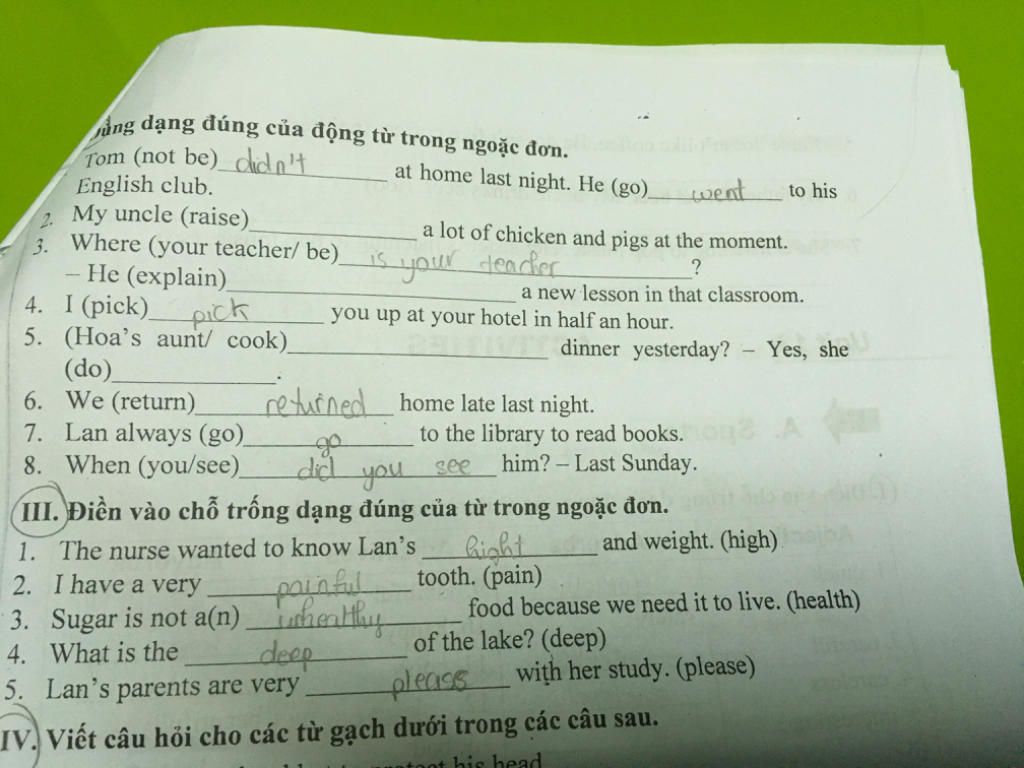 dạng đúng của động từ trong ngoặc đơn.
Tom (not be) didn't at home last night. He (go) went to his
English club.
2. My uncle (raise)____________ a lot of chicken and pigs at the moment.
3. Where (your teacher/ be) is your teacher ?
– He (explain)____________ a new lesson in that classroom.
4. I (pick) pick you up at your hotel in half an hour.
5. (Hoa's aunt/ cook)____________ dinner yesterday? – Yes, she
(do)____________.
6. We (return) returned home late last night.
7. Lan always (go) go to the library to read books.
8. When (you/see) did you see him? – Last Sunday.
III. Điền vào chỗ trống dạng đúng của từ trong ngoặc đơn.
1. The nurse wanted to know Lan's hight and weight. (high)
2. I have a very painful tooth. (pain)
3. Sugar is not a(n) unhealthy food because we need it to live. (health)
4. What is the deep of the lake? (deep)
5. Lan's parents are very pleass with her study. (please)
IV. Viết câu hỏi cho các từ gạch dưới trong các câu sau.
his head